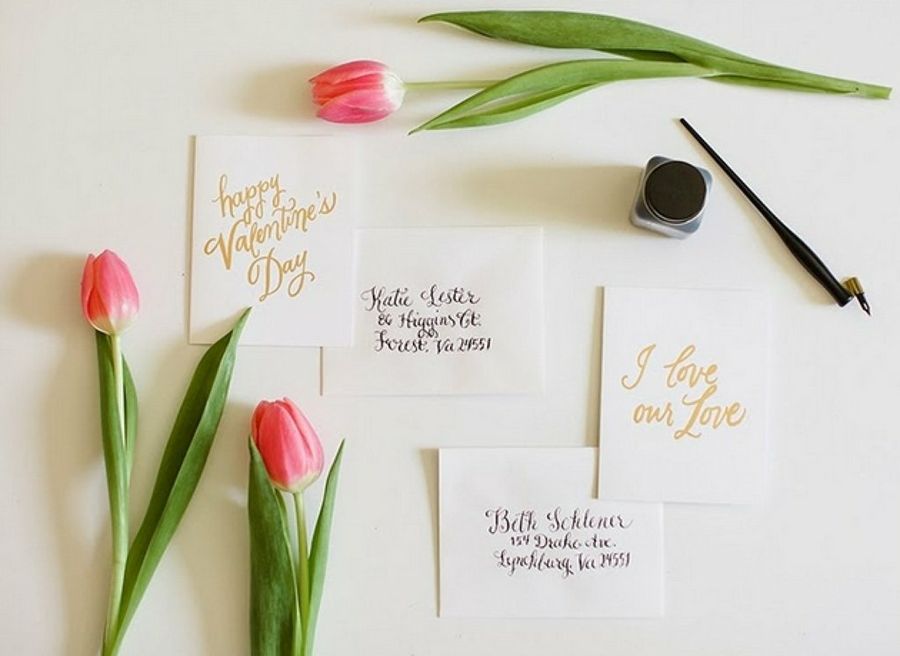 happy
Valentine's
Day
Katie Lester
86 Higgins Ct.
Forest, Va 24551
I love
our Love
Beth Schlener
154 Drake Ave.
Lynchburg, Va 24551